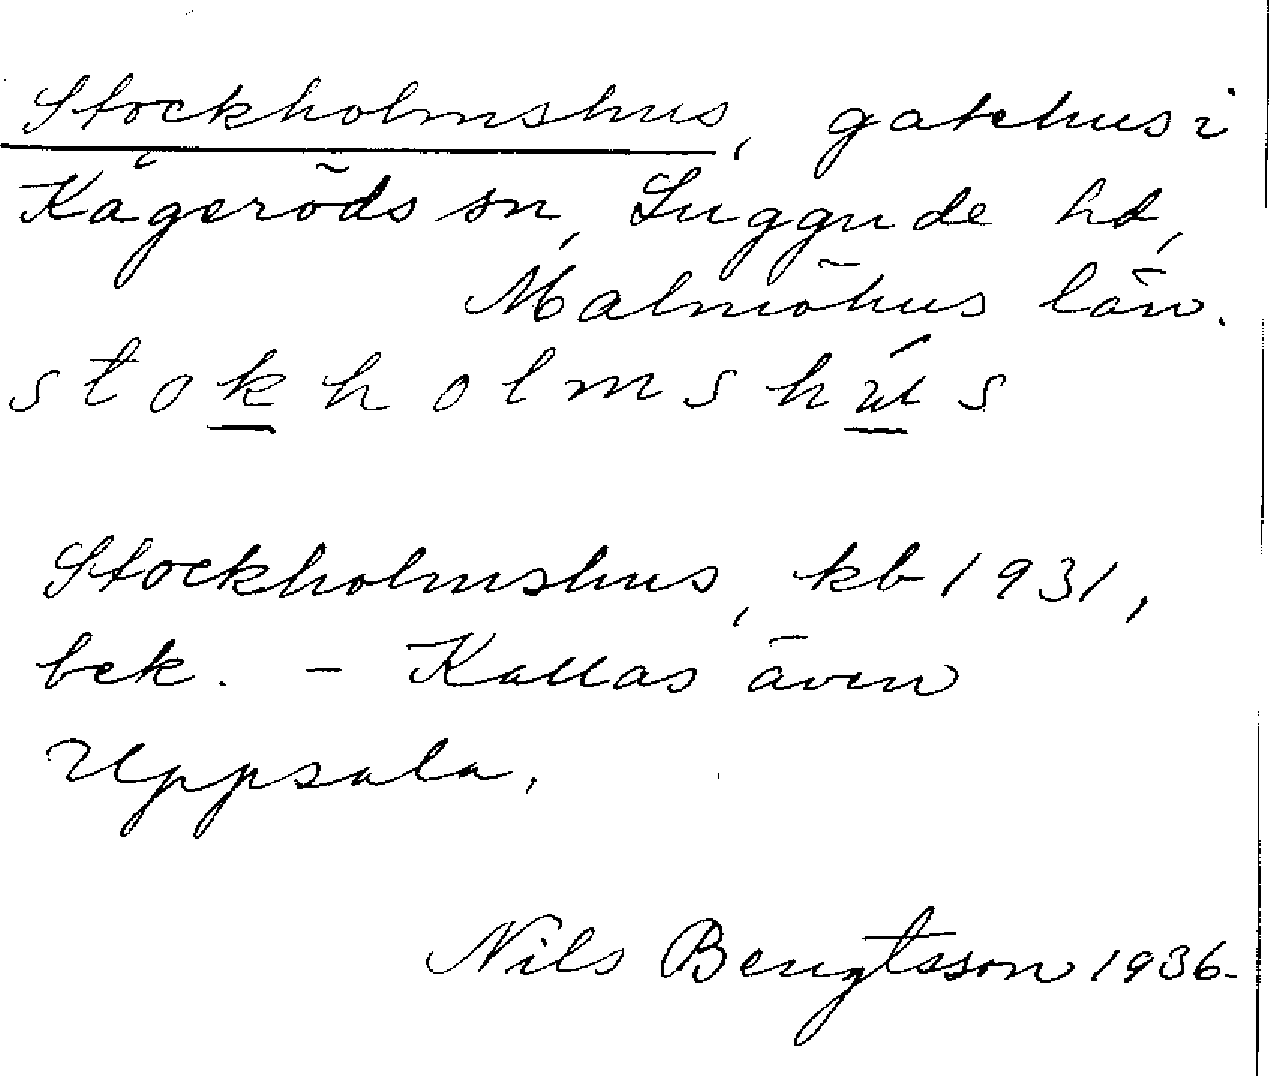 Stockholmshus, gatehus i
Kågeröds sn, Luggude hd,
Malmöhus län.
stokholmshús
Stockholmshus, kb 1931,
bek. - Kallas även
Uppsala.
Nils Bengtsson 1936.